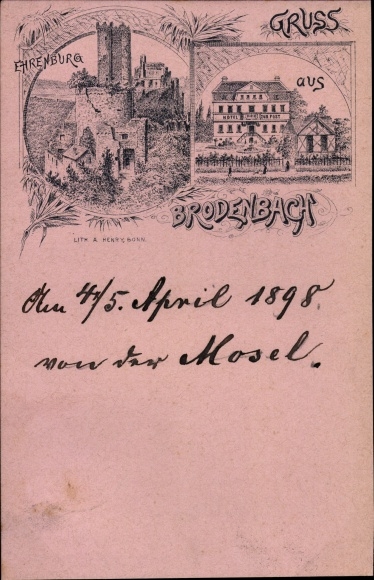 GRUSS
EHRENBURG
aus
HOTEL ZUR POST
BRODENBACH
LITH. A. HENRY, BONN.
Am 4/5. April 1898.
von der Mosel.